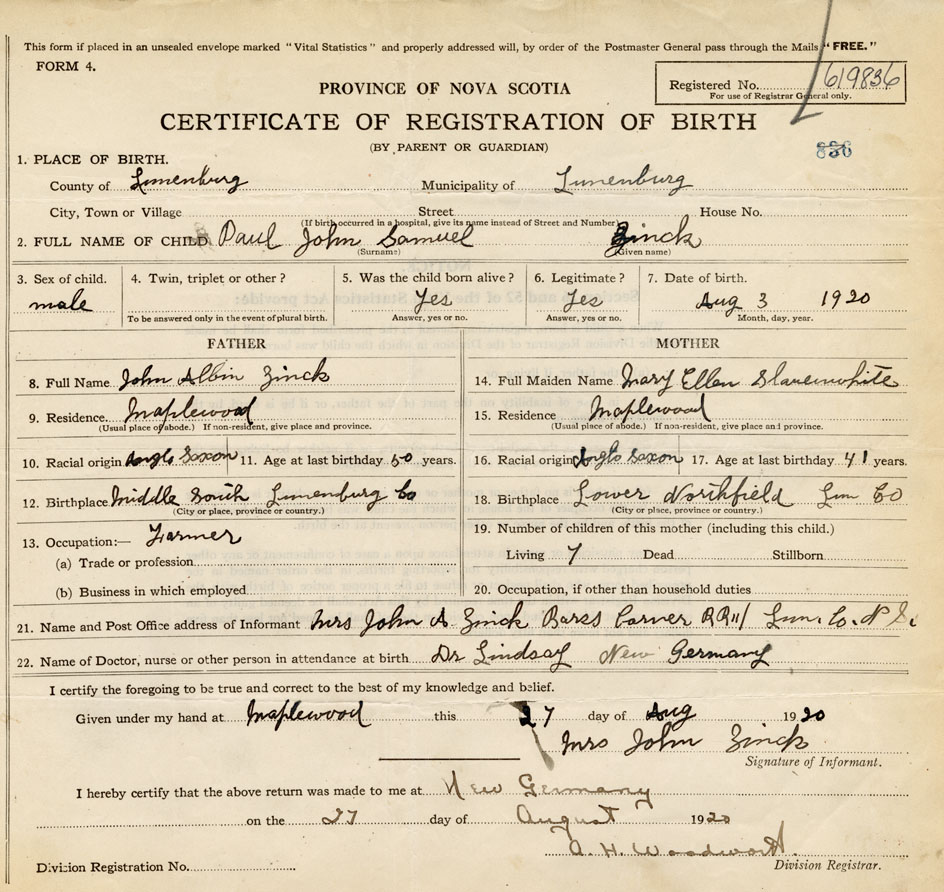 This form if placed in an unsealed envelope marked "Vital Statistics" and properly addressed will, by order of the Postmaster General pass through the Mails "FREE."
FORM 4.
Registered No. 619836
For use of Registrar General only.
PROVINCE OF NOVA SCOTIA
CERTIFICATE OF REGISTRATION OF BIRTH
(BY PARENT OR GUARDIAN)
836
1. PLACE OF BIRTH.
County of Lunenburg Municipality of Lunenburg
City, Town or Village Street House No.
(If birth occurred in a hospital, give its name instead of Street and Number)
2. FULL NAME OF CHILD Paul John Samuel Zinck
(Surname) (Given name)
3. Sex of child. 4. Twin, triplet or other? 5. Was the child born alive? 6. Legitimate? 7. Date of birth.
male Yes Yes Aug 3 1920
To be answered only in the event of plural birth. Answer, yes or no. Answer, yes or no. Month, day, year.
FATHER MOTHER
8. Full Name John Albin Zinck 14. Full Maiden Name Mary Ellen Slauenwhite
9. Residence. Maplewood 15. Residence Maplewood
(Usual place of abode.) If non-resident, give place and province. (Usual place of abode.) If non-resident, give place and province.
10. Racial origin Anglo Saxon 11. Age at last birthday 50 years. 16. Racial origin Anglo Saxon 17. Age at last birthday 41 years.
12. Birthplace Middle South Lunenburg Co 18. Birthplace Lower Northfield Lun Co
(City or place, province or country.) (City or place, province or country.)
13. Occupation:— Farmer 19. Number of children of this mother (including this child.)
(a) Trade or profession Living 7 Dead Stillborn
(b) Business in which employed 20. Occupation, if other than household duties
21. Name and Post Office address of Informant Mrs John A Zinck Barss Corner RR#1 Lun. Co. N S.
22. Name of Doctor, nurse or other person in attendance at birth Dr Lindsay New Germany
I certify the foregoing to be true and correct to the best of my knowledge and belief.
Given under my hand at Maplewood this 27 day of Aug 1920
Mrs John Zinck
Signature of Informant.
I hereby certify that the above return was made to me at New Germany
on the 27 day of August 1920
A. H. Woodworth.
Division Registration No. Division Registrar.